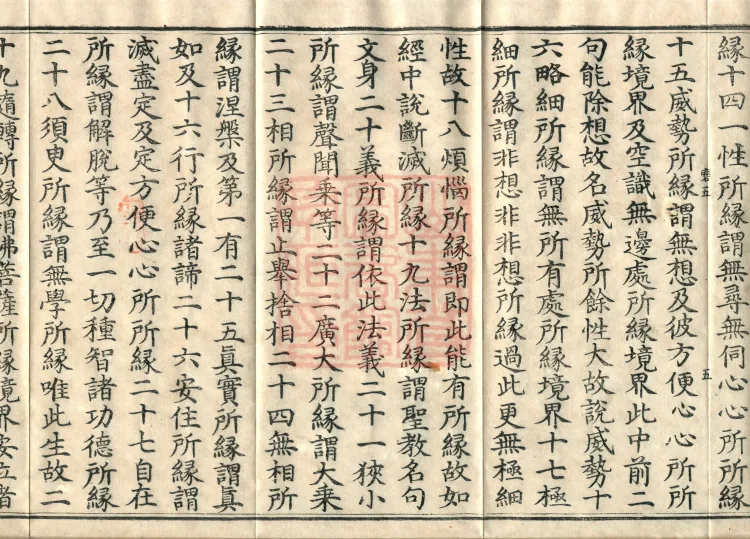 緣十四一性所緣謂無尋無伺心心所所緣
十五威勢所緣謂無想及彼方便心心所所
緣境界及空識無邊處所緣境界此中前二
句能除想故名威勢所餘性大故說威勢十
六略細所緣謂無所有處所緣境界十七極
細所緣謂非想非非想所緣過此更無極細
性故十八煩惱所緣謂即此能有所緣故如
經中說斷滅所緣十九法所緣謂聖教名句
文身二十義所緣謂依此法義二十一狹小
所緣謂聲聞乘等二十二廣大所緣謂大乘
二十三相所緣謂止舉捨相二十四無相所
緣謂涅槃及第一有二十五真實所緣謂真
如及十六行所緣諸諦二十六安住所緣謂
滅盡定及定方便心心所所緣二十七自在
所緣謂解脫等乃至一切種智諸功德所緣
二十八須臾所緣謂無學所緣唯此生故二
十九隨轉所緣謂佛菩薩所緣境界安立者